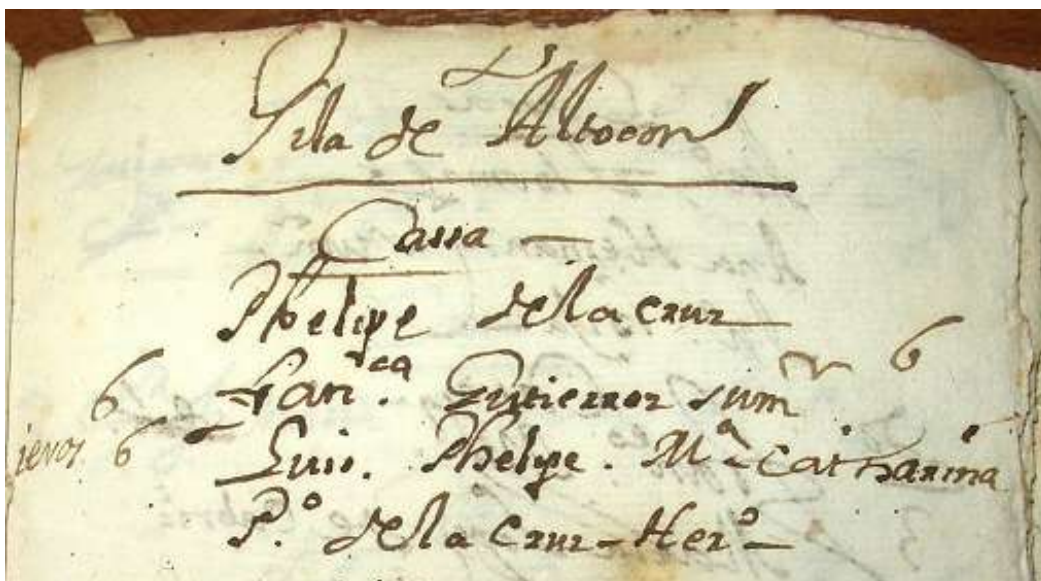 Fila de Altocon
Cassa —
Phelipe de la Cruz
6 Fran.ca Gutierrez su mr 6
ievos 6 Luis. Phelipe. Ma Catharina
P.o de la Cruz - Hero -